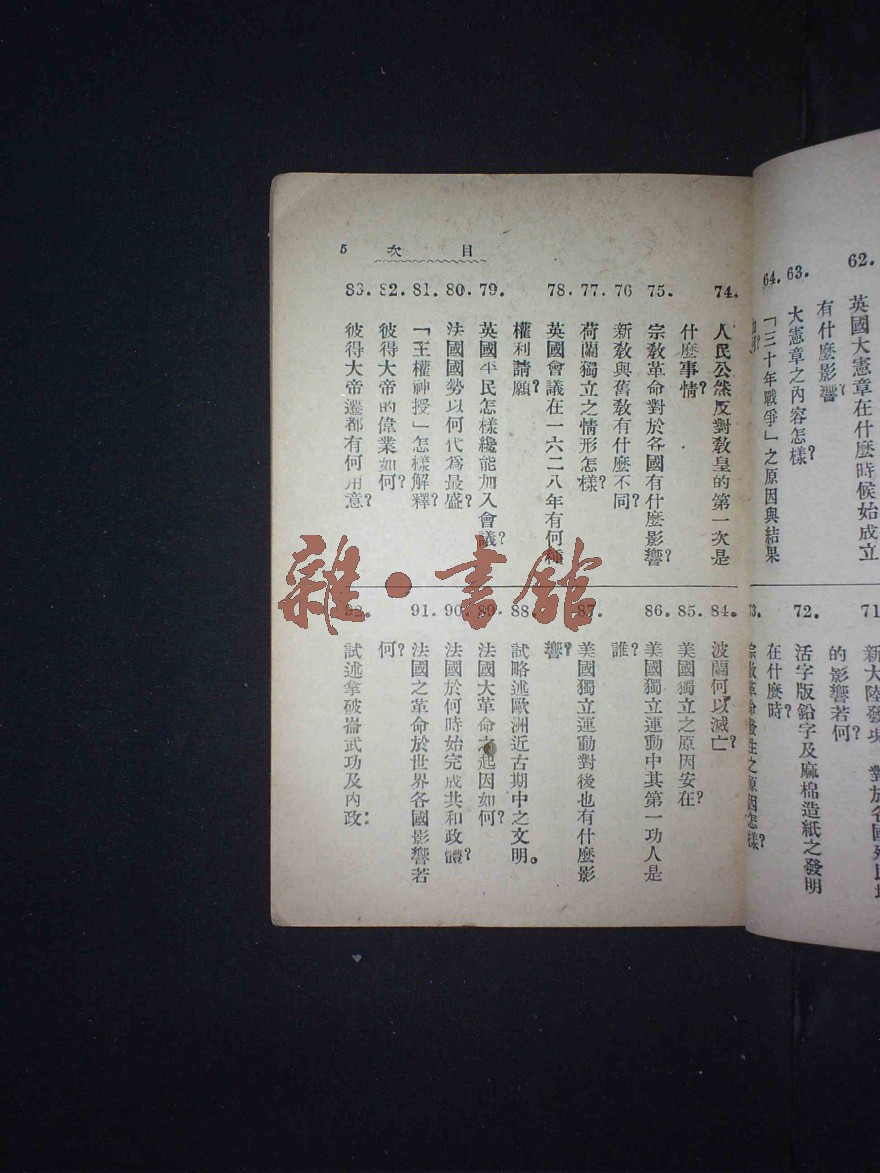 62. 英國大憲章在什麼時候始成立
有什麼影響?
63. 大憲章之內容怎樣?
64. 「三十年戰爭」之原因與結果
如何?
71
的影響若何?
72. 活字版鉛字及麻棉造紙之發明
在什麼時?
73. 宗敎革命發生之原因怎樣?
目次 5
74. 人民公然反對敎皇的第一次是
什麼事情?
75. 宗敎革命對於各國有什麼影響?
76 新敎與舊敎有什麼不同?
77. 荷蘭獨立之情形怎樣?
78. 英國會議在一六二八年有何種
權利請願?
79. 英國平民怎樣纔能加入會議?
80. 法國國勢以何代爲最盛?
81. 「王權神授」怎樣解釋?
82. 彼得大帝的偉業如何?
83. 彼得大帝遷都有何用意?
84. 波蘭何以滅亡?
85. 美國獨立之原因安在?
86. 美國獨立運動中其第一功人是
誰?
87. 美國獨立運動對後也有什麼影
響?
88. 試略述歐洲近古期中之文明。
89. 法國大革命之起因如何?
90. 法國於何時始完成共和政體?
91. 法國之革命於世界各國影響若
何?
92. 試述拿破崙武功及內政:
雜·書館